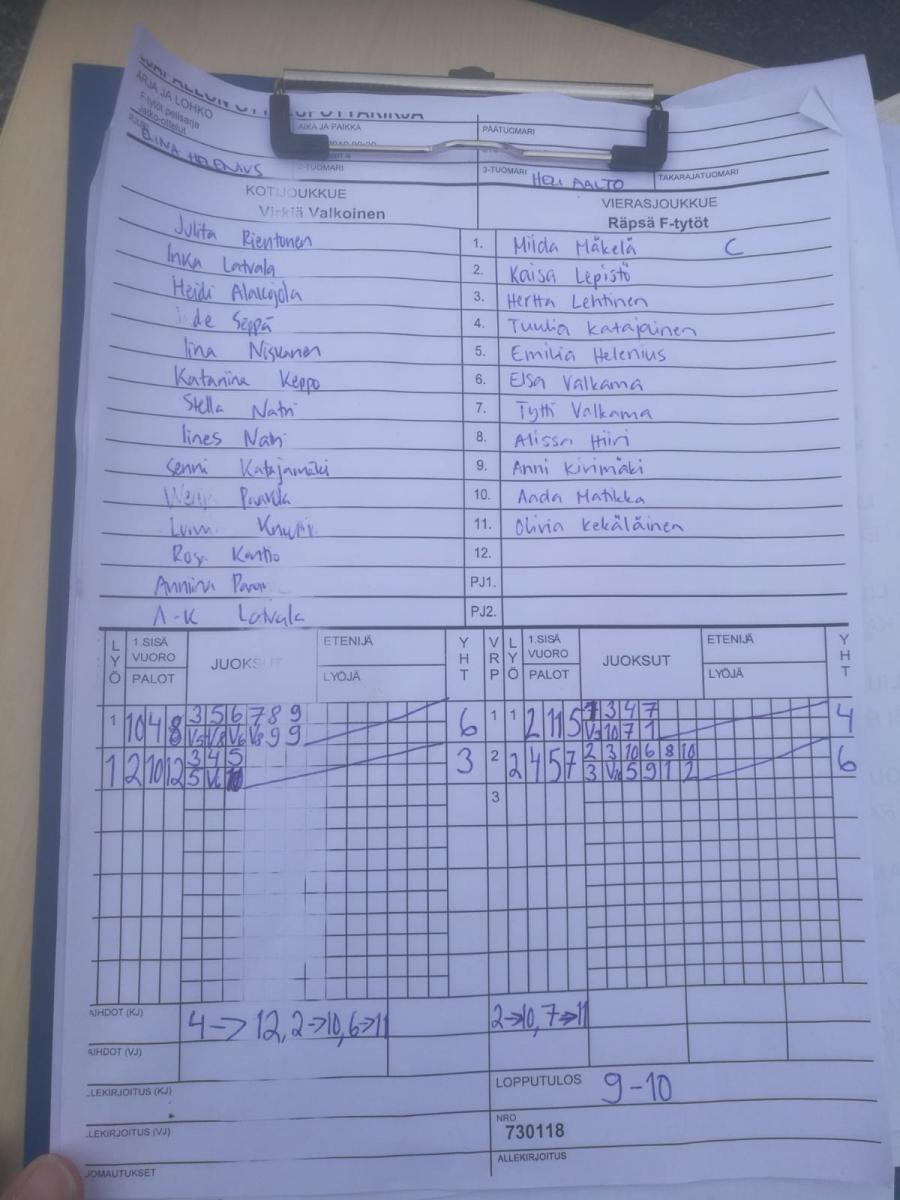 ARJA JA LOHKO
F-tytöt pelisarja
Jatko-ottelut
AIKA JA PAIKKA
PÄÄTUOMARI
ELINA HELENIUS
2-TUOMARI
3-TUOMARI HELI AALTO
TAKARAJATUOMARI
KOTIJOUKKUE
Virkiä Valkoinen
VIERASJOUKKUE
Räpsä F-tytöt
Julita Rientonen 1. Milda Mäkelä C
Inka Latvala 2. Kaisa Lepistö
Heidi Alakojola 3. Hertta Lehtinen
de Seppä 4. Tuulia Katajainen
Iina Niskanen 5. Emilia Helenius
Katariina Keppo 6. Elsa Valkama
Stella Natri 7. Tytti Valkama
Iines Natri 8. Alissa Hiiri
Senni Katajamäki 9. Anni Kivimäki
10. Aada Matikka
11. Olivia Kekäläinen
Rosa Kontio 12.
Anniina PJ1.
A-K Latvala PJ2.
LYÖ 1.SISÄ VUORO PALOT JUOKSUT ETENIJÄ LYÖJÄ YHT VRP LYÖ 1.SISÄ VUORO PALOT JUOKSUT ETENIJÄ LYÖJÄ YHT
1 10 4 8 3 5 6 7 8 9 6 1 1 2 11 5 7 3 4 7 4
V5 V8 V6 V8 9 9 10 7 1
1 2 10 12 3 4 5 3 2 2 4 5 7 2 3 10 6 8 10 6
5 V6 10 3 5 9 1 2
3
AIHDOT (KJ) 4->12, 2->10, 6->11 2->10, 7->11
AIHDOT (VJ)
LLEKIRJOITUS (KJ)
LOPPUTULOS 9-10
LLEKIRJOITUS (VJ)
NRO
730118
JOMAUTUKSET
ALLEKIRJOITUS